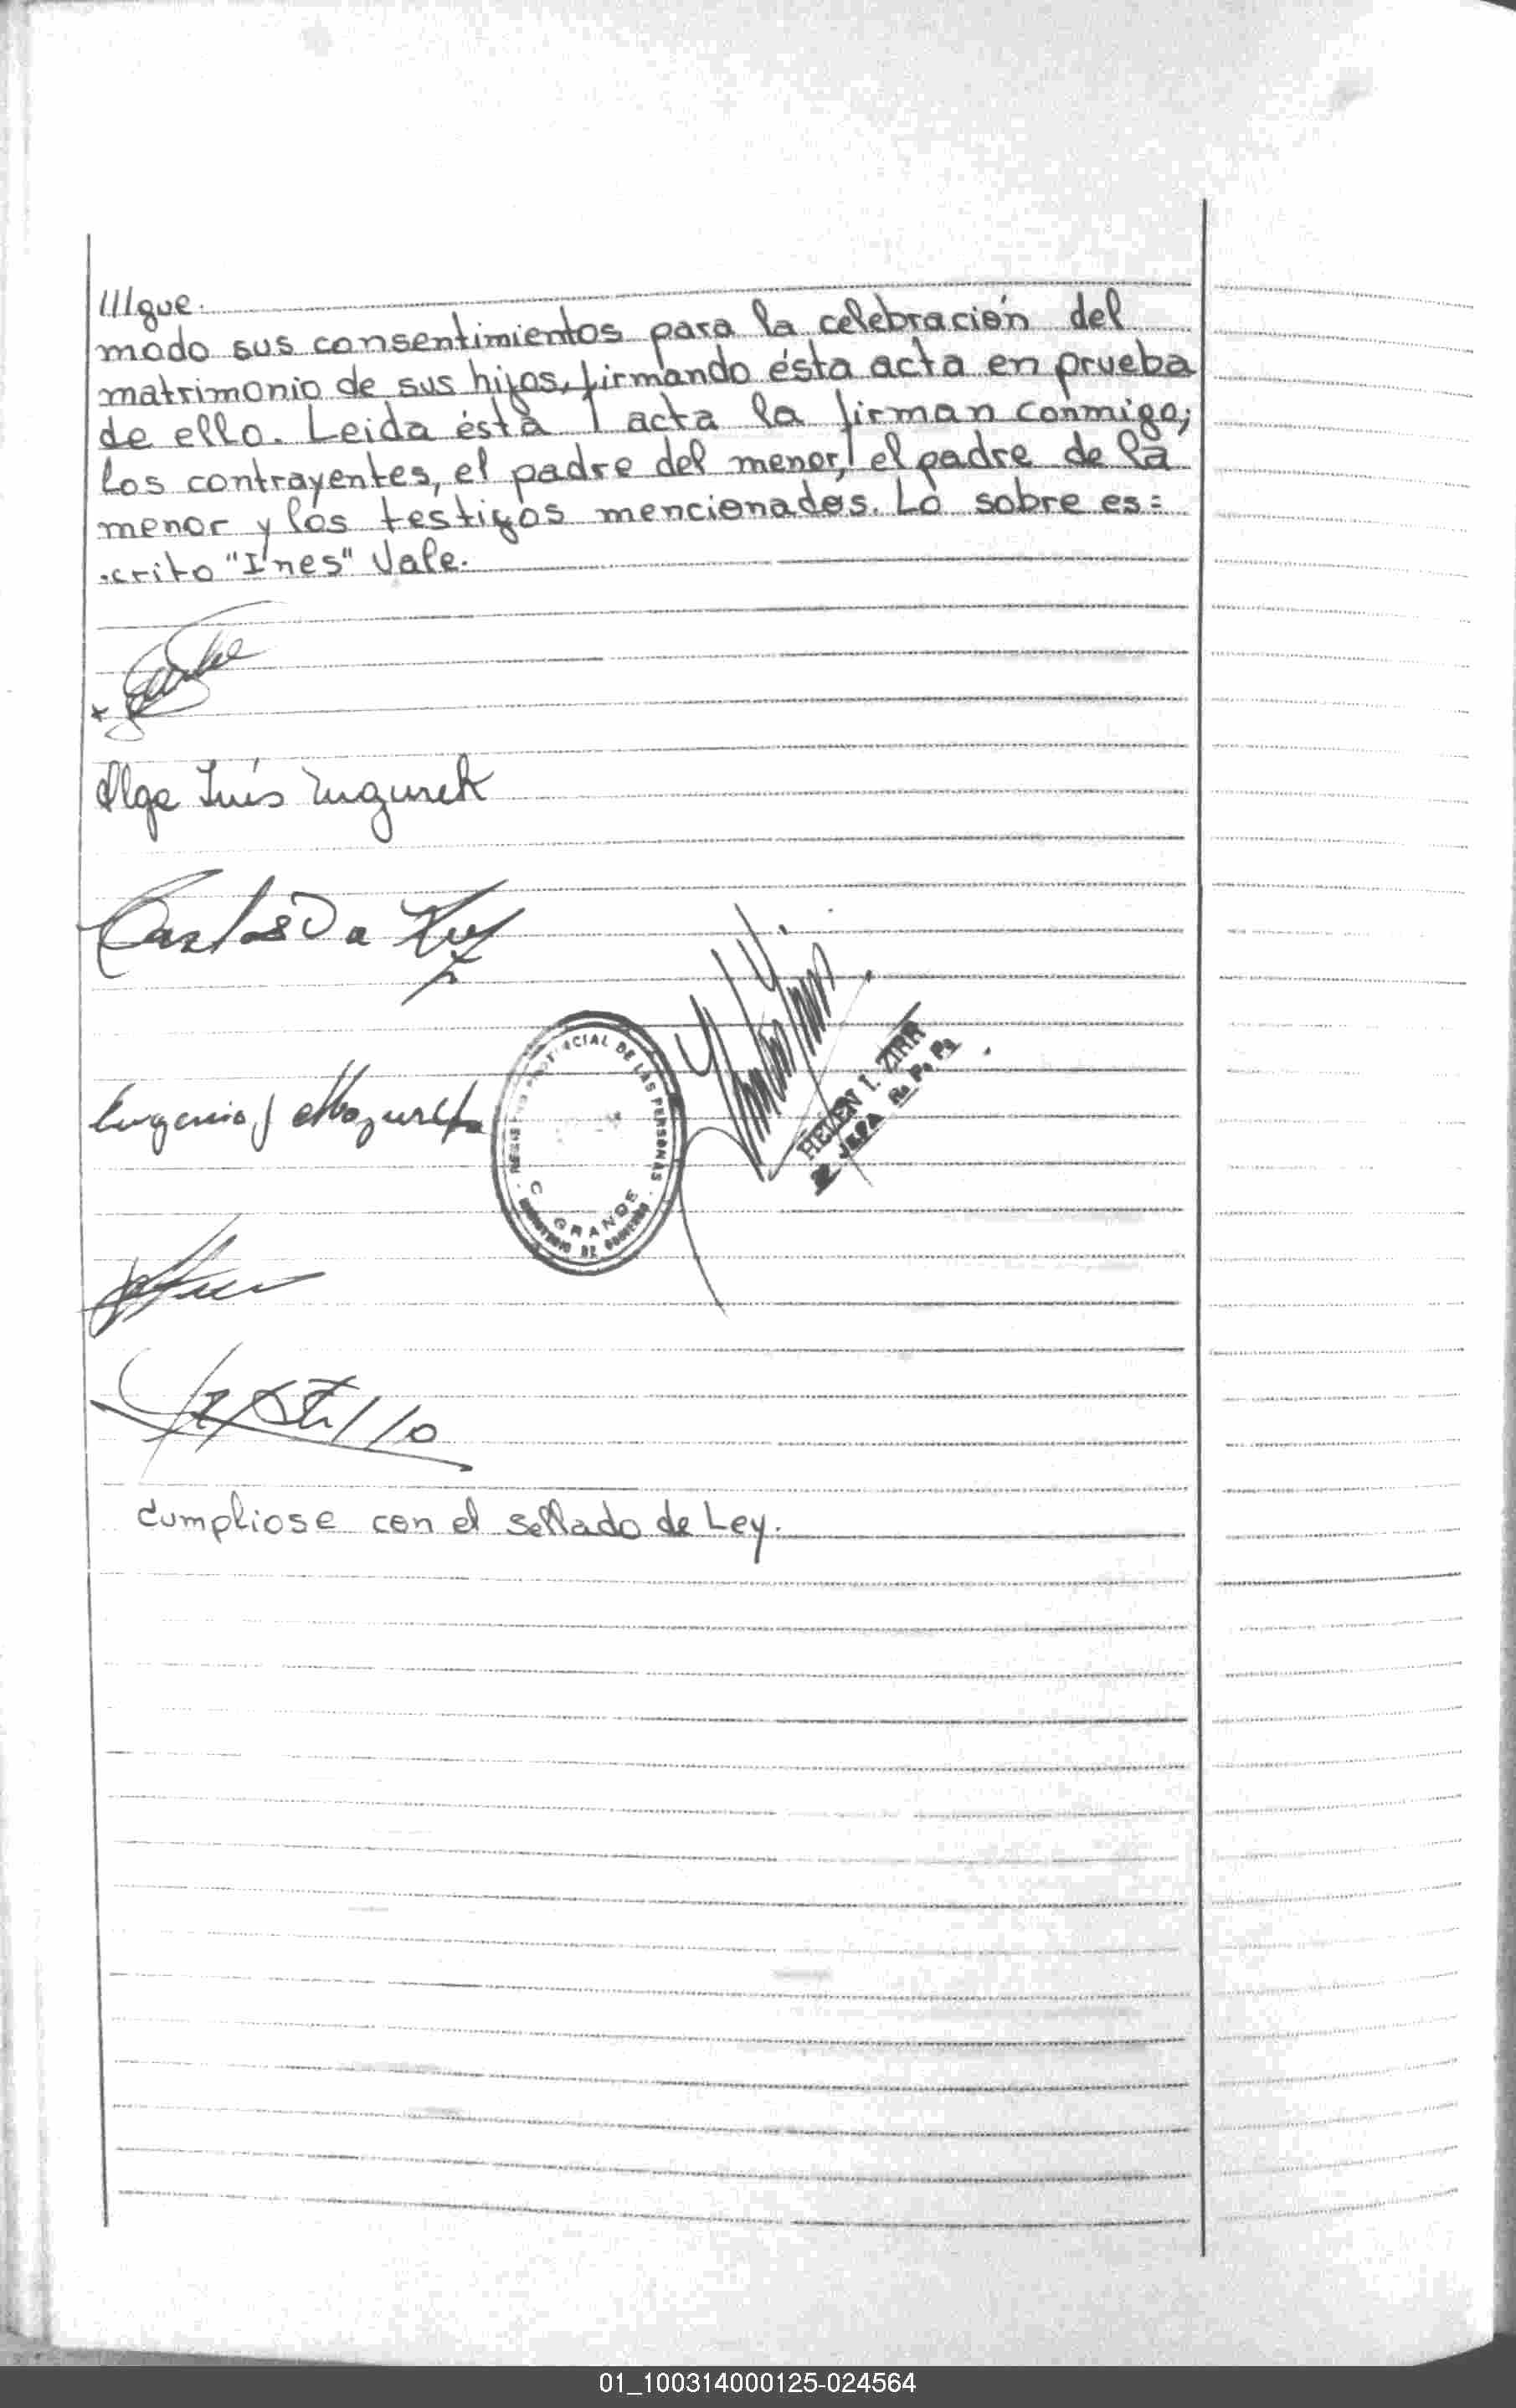 ///que.
modo sus consentimientos para la celebración del
matrimonio de sus hijos, firmando ésta acta en prueba
de ello. Leida ésta acta la firman conmigo;
los contrayentes, el padre del menor, el padre de la
menor y los testigos mencionados. Lo sobre es=
crito "Ines" Vale.
Olga Inés
Carlos Da
Eugenio J
PROVINCIAL DE LAS PERSONAS
C. GRANDE
MINISTERIO DE GOBIERNO
HELEN I. ZIRR
JEFA R. P. P.
Cumpliose con el sellado de Ley.
01_100314000125-024564